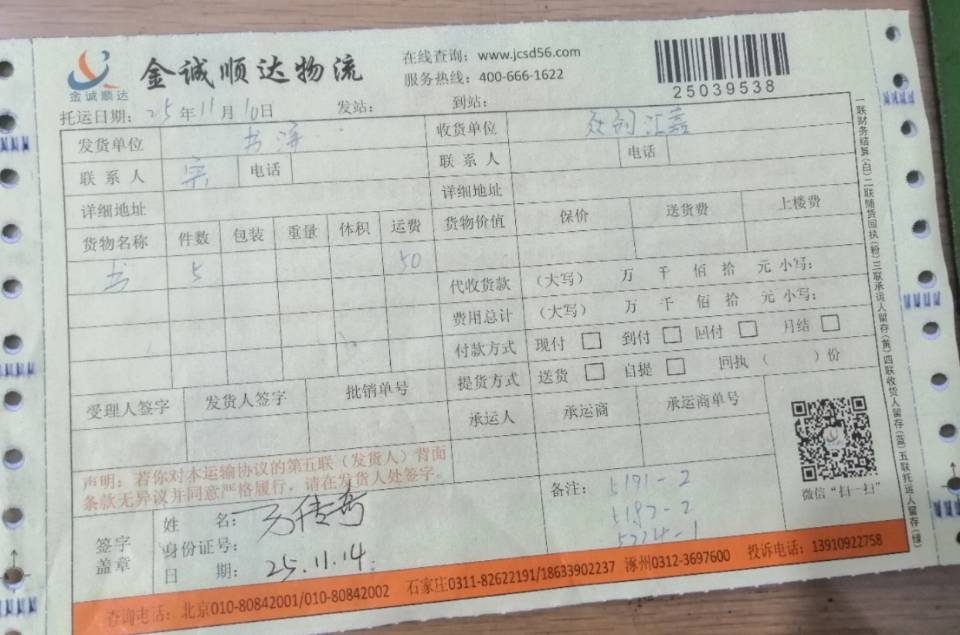 金诚顺达物流
金诚顺达
在线查询：www.jcsd56.com
服务热线：400-666-1622
25039538
托运日期：25年11月10日 发站： 到站：
发货单位 收货单位 众创汇嘉
联系人 宋 电话 联系人 电话
详细地址 详细地址
货物名称 件数 包装 重量 体积 运费 货物价值 保价 送货费 上楼费
书 5 50
代收货款 （大写） 万 千 佰 拾 元 小写：
费用总计 （大写） 万 千 佰 拾 元 小写：
付款方式 现付 □ 到付 □ 回付 □ 月结 □
提货方式 送货 □ 自提 □ 回执（ ）份
受理人签字 发货人签字 批销单号 承运人 承运商 承运商单号
声明：若你对本运输协议的第五联（发货人）背面
条款无异议并同意严格履行，请在发货人处签字。
签字
盖章
姓 名：万传奇
身份证号：
日 期：25.11.14
备注：5191-2
5187-2
5224-1
微信“扫一扫”
一联财务结算(白)二联随货回执(粉)三联承运人留存(黄)四联收货人留存(蓝)五联托运人留存(绿)
查询电话：北京010-80842001/010-80842002 石家庄0311-82622191/18633902237 涿州0312-3697600 投诉电话：13910922758